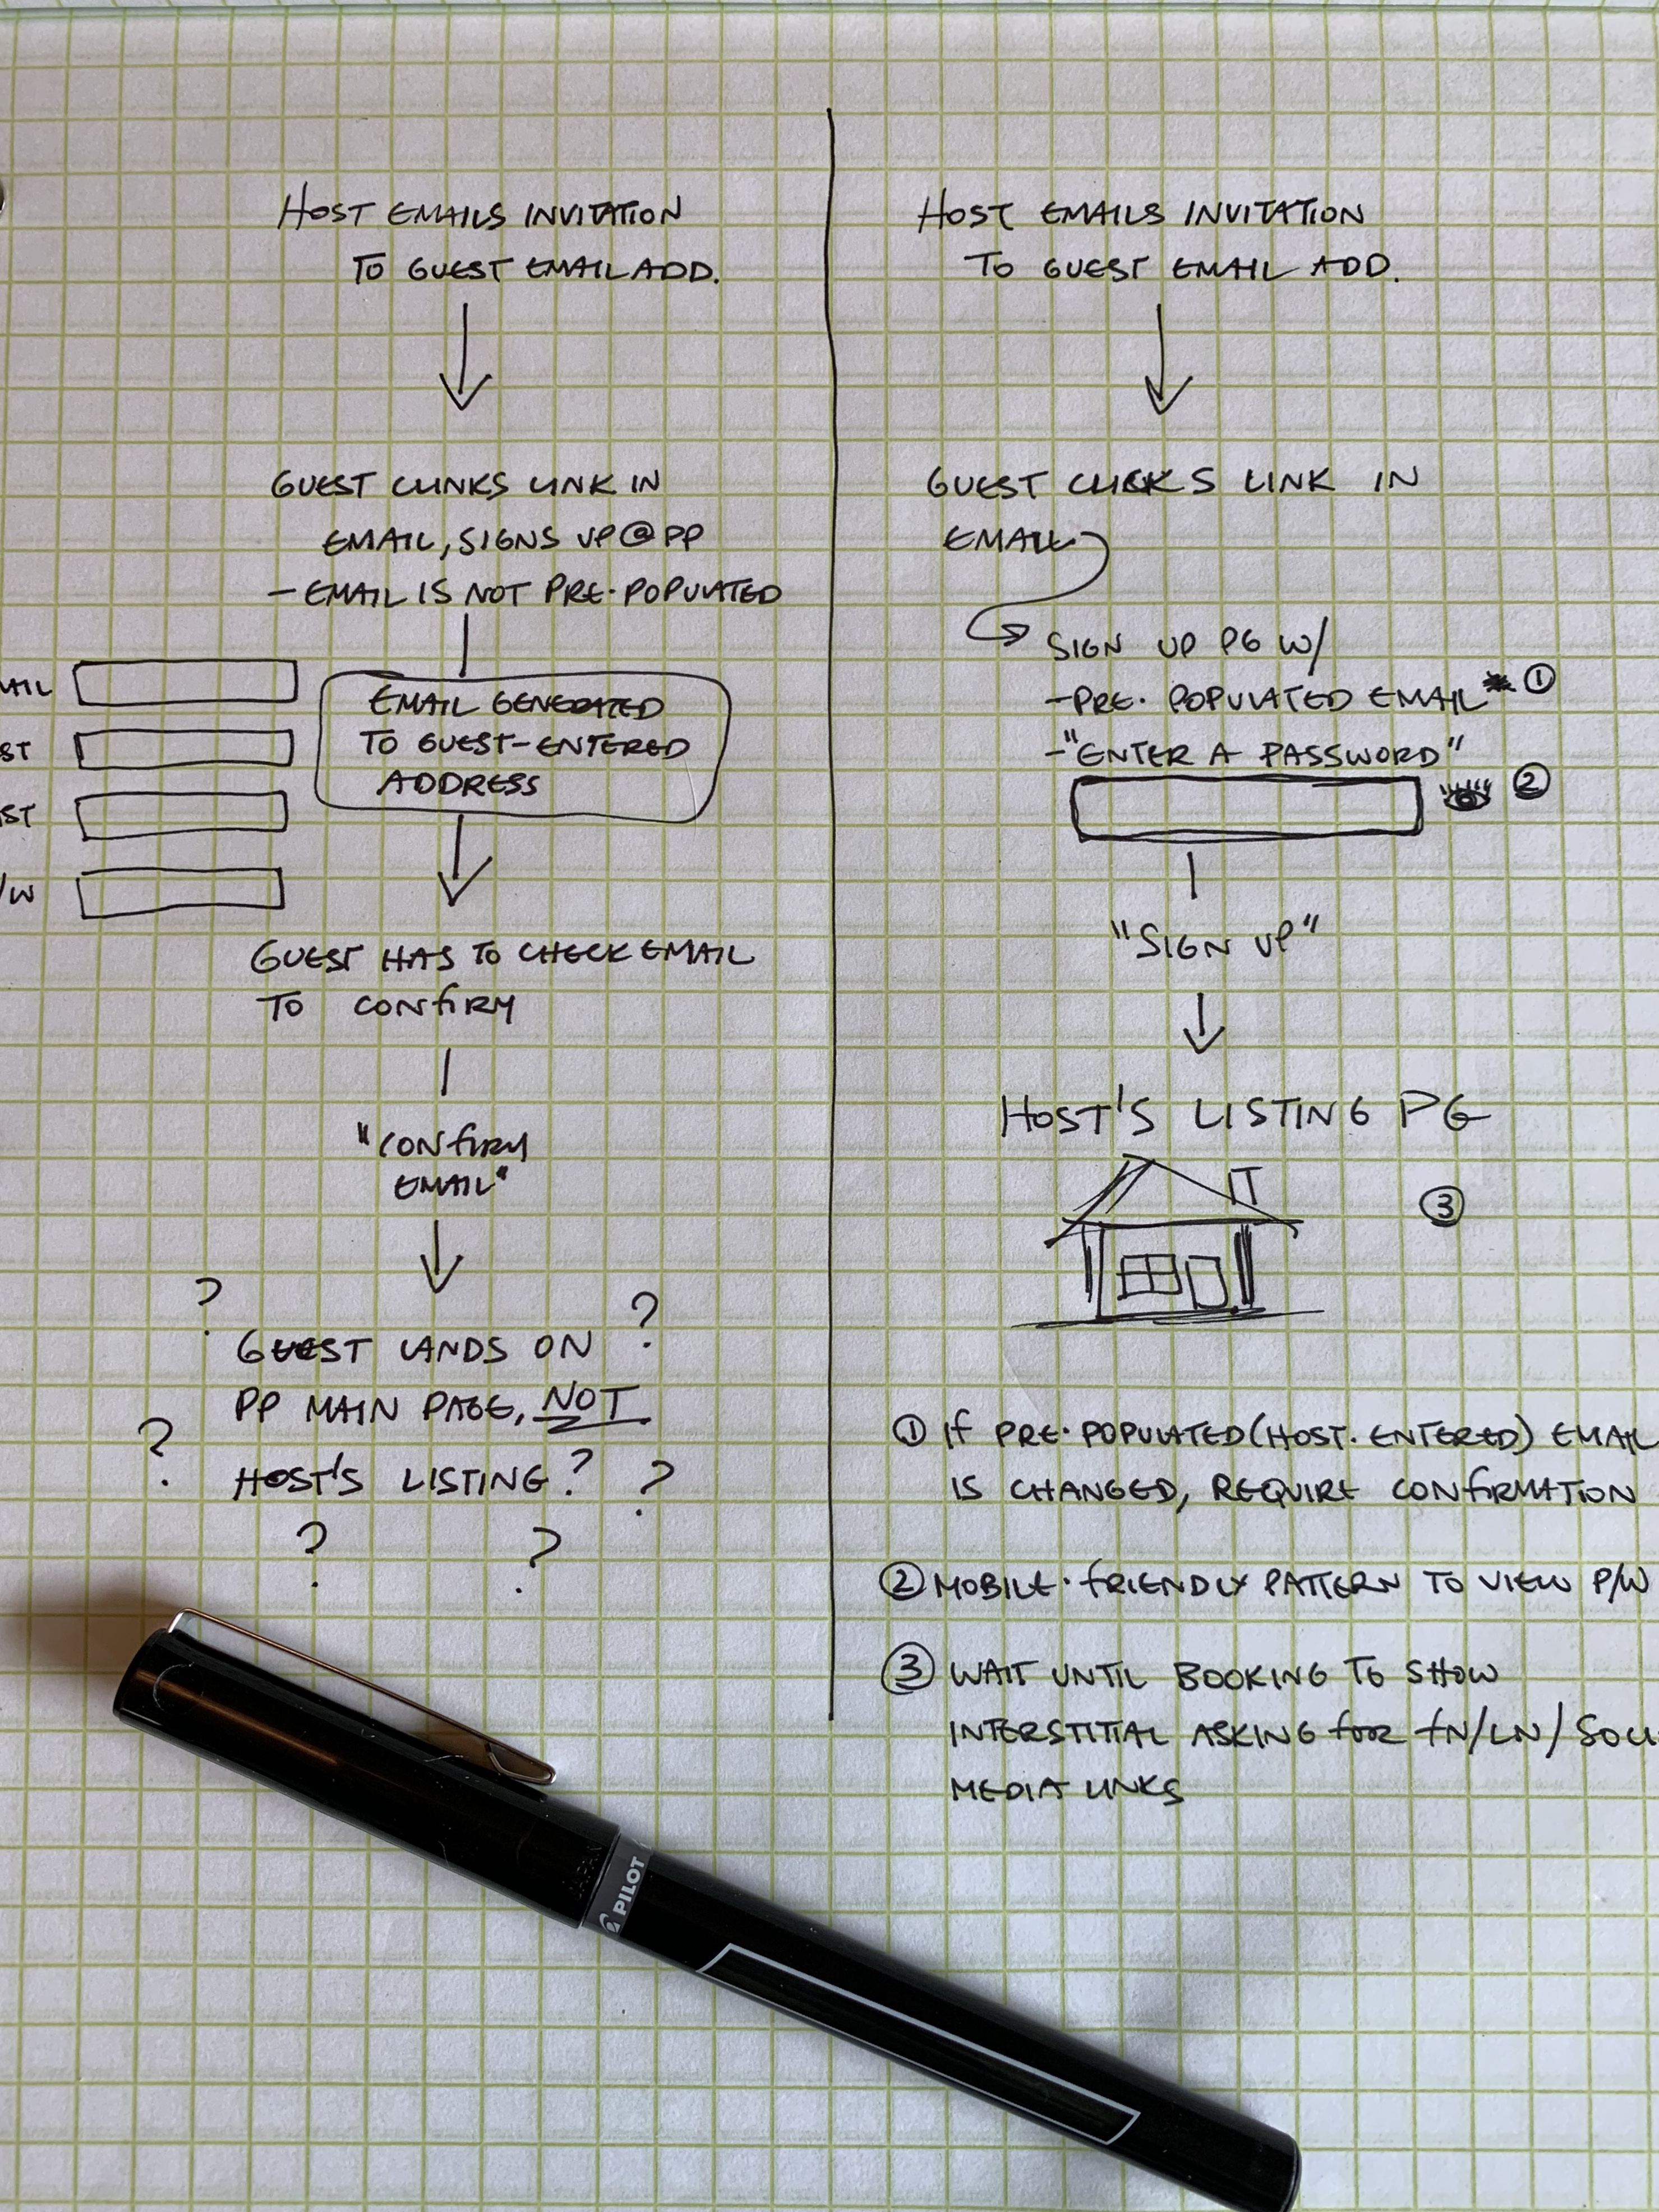 HOST EMAILS INVITATION
TO GUEST EMAIL ADD.
GUEST CLINKS LINK IN
EMAIL, SIGNS UP @ PP
- EMAIL IS NOT PRE-POPULATED
AIL
ST
ST
/W
EMAIL GENERATED
TO GUEST-ENTERED
ADDRESS
GUEST HAS TO CHECK EMAIL
TO CONFIRM
"CONFIRM
EMAIL"
? ?
GUEST LANDS ON
PP MAIN PAGE, NOT
?
HOST'S LISTING? ?
? ?
HOST EMAILS INVITATION
TO GUEST EMAIL ADD.
GUEST CLICKS LINK IN
EMAIL
SIGN UP PG W/
-PRE-POPULATED EMAIL ①
-"ENTER A PASSWORD"
②
"SIGN UP"
HOST'S LISTING PG
③
① IF PRE-POPULATED (HOST-ENTERED) EMAIL
IS CHANGED, REQUIRE CONFIRMATION
② MOBILE-FRIENDLY PATTERN TO VIEW P/W
③ WAIT UNTIL BOOKING TO SHOW
INTERSTITIAL ASKING FOR FN/LN/SOCI
MEDIA LINKS
PILOT
JAPAN